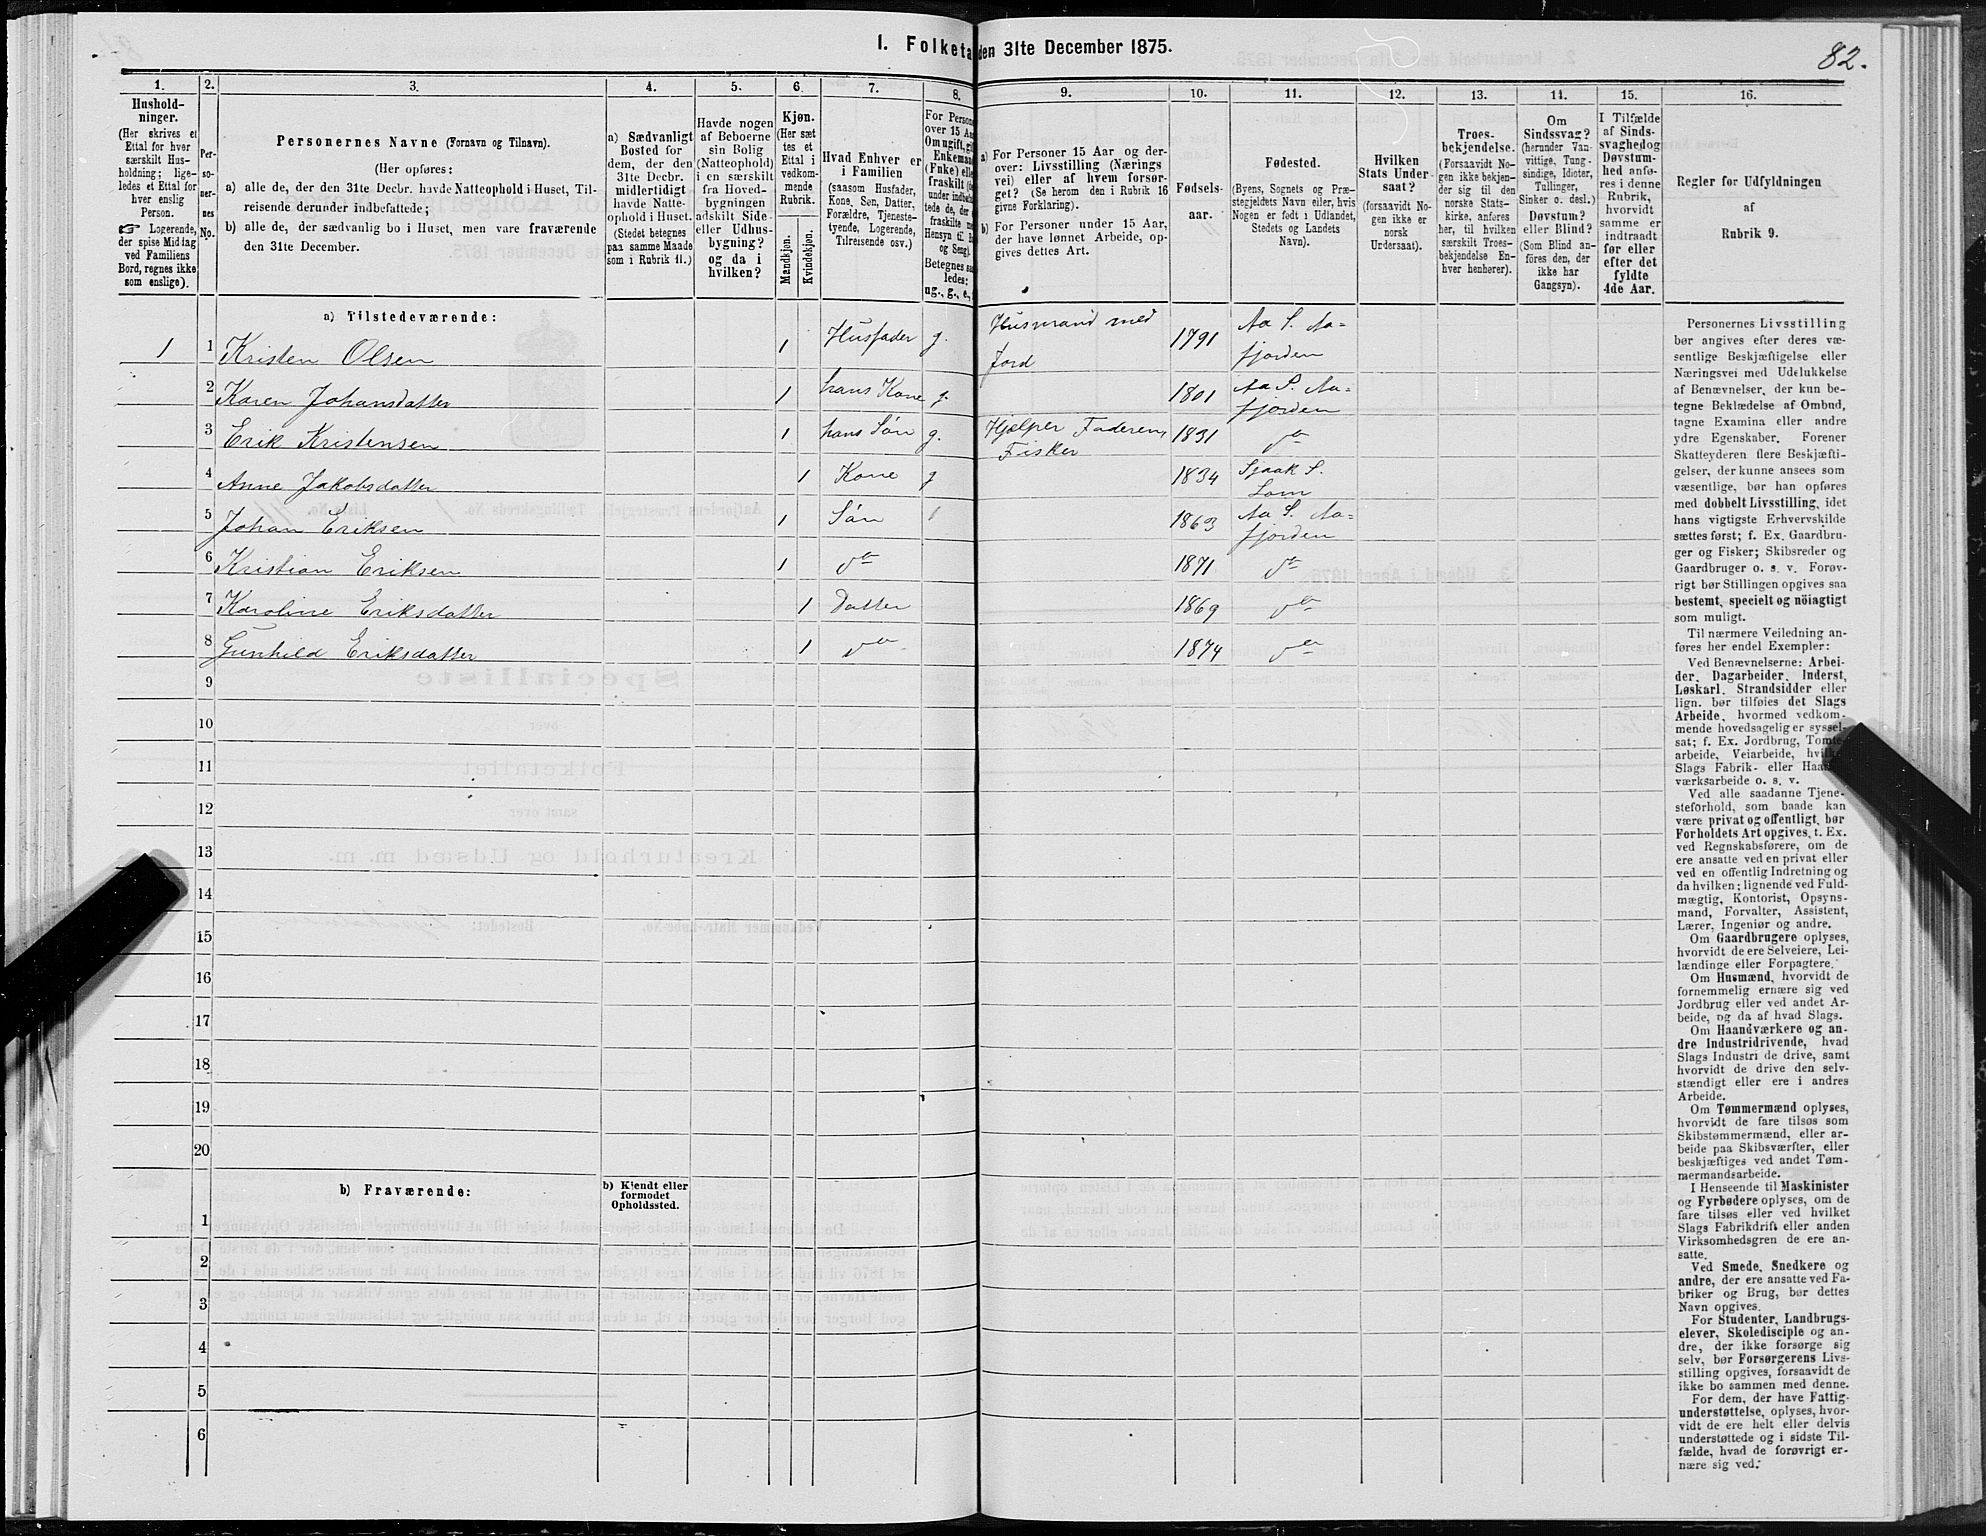 1. Folketa
den 31te December 1875.
82.
1.
2.
3.
4.
5.
6.
7.
8.
9.
10.
11.
12.
13.
14.
15.
16.
Hushold-
ninger.
(Her skrives et
Ettal for hver
særskilt Hus-
holdning; lige-
ledes et Ettal for
hver enslig
Person.
☞ Logerende,
der spise Middag
ved Familiens
Bord, regnes ikke
som enslige).
Per-
so-
ner-
nes
No.
Personernes Navne (Fornavn og Tilnavn).
(Her opføres:
a) alle de, der den 31te Decbr. havde Natteophold i Huset, Til-
reisende derunder indbefattede;
b) alle de, der sædvanlig bo i Huset, men vare fraværende
den 31te December.
a) Sædvanligt
Bosted for
dem, der den
31te Decbr.
midlertidigt
havde Natte-
ophold i Huset.
(Stedet betegnes
paa samme Maade
som i Rubrik 11.)
Havde nogen
af Beboerne
sin Bolig
(Natteophold)
i en særskilt
fra Hoved-
bygningen
adskilt Side-
eller Udhus-
bygning?
og da i
hvilken?
Kjøn.
(Her sæt
tes et
Ettal i
vedkom-
mende
Rubrik.
Mandkjøn.
Kvindekjøn.
Hvad Enhver er
i Familien
(saasom Husfader,
Kone, Søn, Datter,
Forældre, Tjeneste-
tyende, Logerende,
Tilreisende osv.)
For Persone
over 15 Aa
Om ugift, gif
Enkeman
(Enke) elle
fraskilt
Betegnes saa
ledes:
ug., g., e.,
a) For Personer 15 Aar og der-
over: Livsstilling (Nærings
vei) eller af hvem forsør-
get? (Se herom den i Rubrik 16
givne Forklaring).
b) For Personer under 15 Aar,
der have lønnet Arbeide, op-
gives dettes Art.
Fødsels-
aar.
Fødested.
(Byens, Sognets og Præ-
stegjeldets Navn eller, hvis
Nogen er født i Udlandet,
Stedets og Landets
Navn).
Hvilken
Stats Under-
saat?
(forsaavidt No-
gen ikke er
norsk
Undersaat).
Troes-
bekjendelse.
(Forsaavidt No-
gen ikke bekjen-
der sig til den
norske Stats-
kirke, anføres
her, til hvilken
særskilt Troes-
bekjendelse En-
hver henhører).
Om
Sindssvag?
(herunder Van-
vittige, Tung-
sindige, Idioter,
Tullinger,
Sinker o. desl.)
Døvstum?
eller Blind?
(Som Blind an-
føres den, der
ikke har
Gangsyn).
I Tilfælde
af Sinds-
svaghed og
Døvstum-
hed anfø-
res i denne
Rubrik,
hvorvidt
samme er
indtraadt
før eller
efter det
fyldte
4de Aar.
Regler for Udfyldningen
af
Rubrik 9.
a) Tilstedeværende:
1 1 Kristen Olsen 1 Husfader g. Husmand med Jord 1791 Aa S. Aa=fjorden
2 Karen Johansdatter 1 hans Kone g. 1801 Aa S. Aa=fjorden
3 Erik Kristensen 1 hans Søn g. Hjelper Faderen, Fisker 1831 do
4 Anne Jakobsdatter 1 Kone g 1834 Sjaak S. Lom
5 Johan Eriksen 1 Søn 1863 Aa S. Aa=fjorden
6 Kristian Eriksen 1 do 1871 do
7 Karoline Eriksdatter 1 Datter 1869 do
8 Gunhild Eriksdatter 1 do 1874 do
9
10
11
12
13
14
15
16
17
18
19
20
b) Fraværende:
b) Kjendt eller
formodet
Opholdssted.
1
2
3
4
5
6
Personernes Livsstilling
bør angives efter deres væ-
sentlige Beskjæftigelse eller
Næringsvei med Udelukkelse
af Benævnelser, der kun be-
tegne Beklædelse af Ombud,
tagne Examina eller andre
ydre Egenskaber. Forener
Skatteyderen flere Beskjæfti-
gelser, der kunne ansees som
væsentlige, bør han opføres
med dobbelt Livsstilling, idet
hans vigtigste Erhvervskilde
sættes først; f. Ex. Gaardbru-
ger og Fisker; Skibsreder og
Gaardbruger o. s. v. Forøv-
rigt bør Stillingen opgives saa
bestemt, specielt og nöiagtigt
som muligt.
Til nærmere Veiledning an-
føres her endel Exempler:
Ved Benævnelserne: Arbei-
der, Dagarbeider, Inderst,
Løskarl, Strandsidder eller
lign. bør tilføies det Slags
Arbeide, hvormed vedkom-
mende hovedsagelig er syssel-
sat; f. Ex. Jordbrug, Tomte-
arbeide, Veiarbeide, hvilket
Slags Fabrik- eller Haand-
værksarbeide o. s. v.
Ved alle saadanne Tjene-
steforhold, som baade kan
være privat og offentligt, bør
Forholdets Art opgives, t. Ex.
ved Regnskabsførere, om de
ere ansatte ved en privat eller
ved en offentlig Indretning og
da hvilken; lignende ved Fuld-
mægtig, Kontorist, Opsyns-
mand, Forvalter, Assistent,
Lærer, Ingeniør og andre.
Om Gaardbrugere oplyses,
hvorvidt de ere Selveiere, Lei-
lændinge eller Forpagtere.
Om Husmænd, hvorvidt de
fornemmelig ernære sig ved
Jordbrug eller ved andet Ar-
beide, og da af hvad Slags.
Om Haandværkere og an-
dre Industridrivende, hvad
Slags Industri de drive, samt
hvorvidt de drive den selv-
stændigt eller ere i andres
Arbeide.
Om Tømmermænd oplyses,
hvorvidt de fare tilsøs som
Skibstømmermænd, eller ar-
beide paa Skibsværfter, eller
beskjæftiges ved andet Tøm-
mermandsarbeide.
I Henseende til Maskinister
og Fyrbødere oplyses, om de
fare tilsøs eller ved hvilket
Slags Fabrikdrift eller anden
Virksomhedsgren de ere an-
satte.
Ved Smede, Snedkere og
andre, der ere ansatte ved Fa-
briker og Brug, bør dettes
Navn opgives.
For Studenter, Landbrugs-
elever, Skoledisciple og an-
dre, der ikke forsørge sig
selv, bør Forsørgerens Livs-
stilling opgives, forsaavidt de
ikke bo sammen med denne.
For dem, der have Fattig-
understøttelse, oplyses, hvor-
vidt de ere helt eller delvis
understøttede og i sidste Til-
fælde, hvad de forøvrigt er-
nære sig ved.